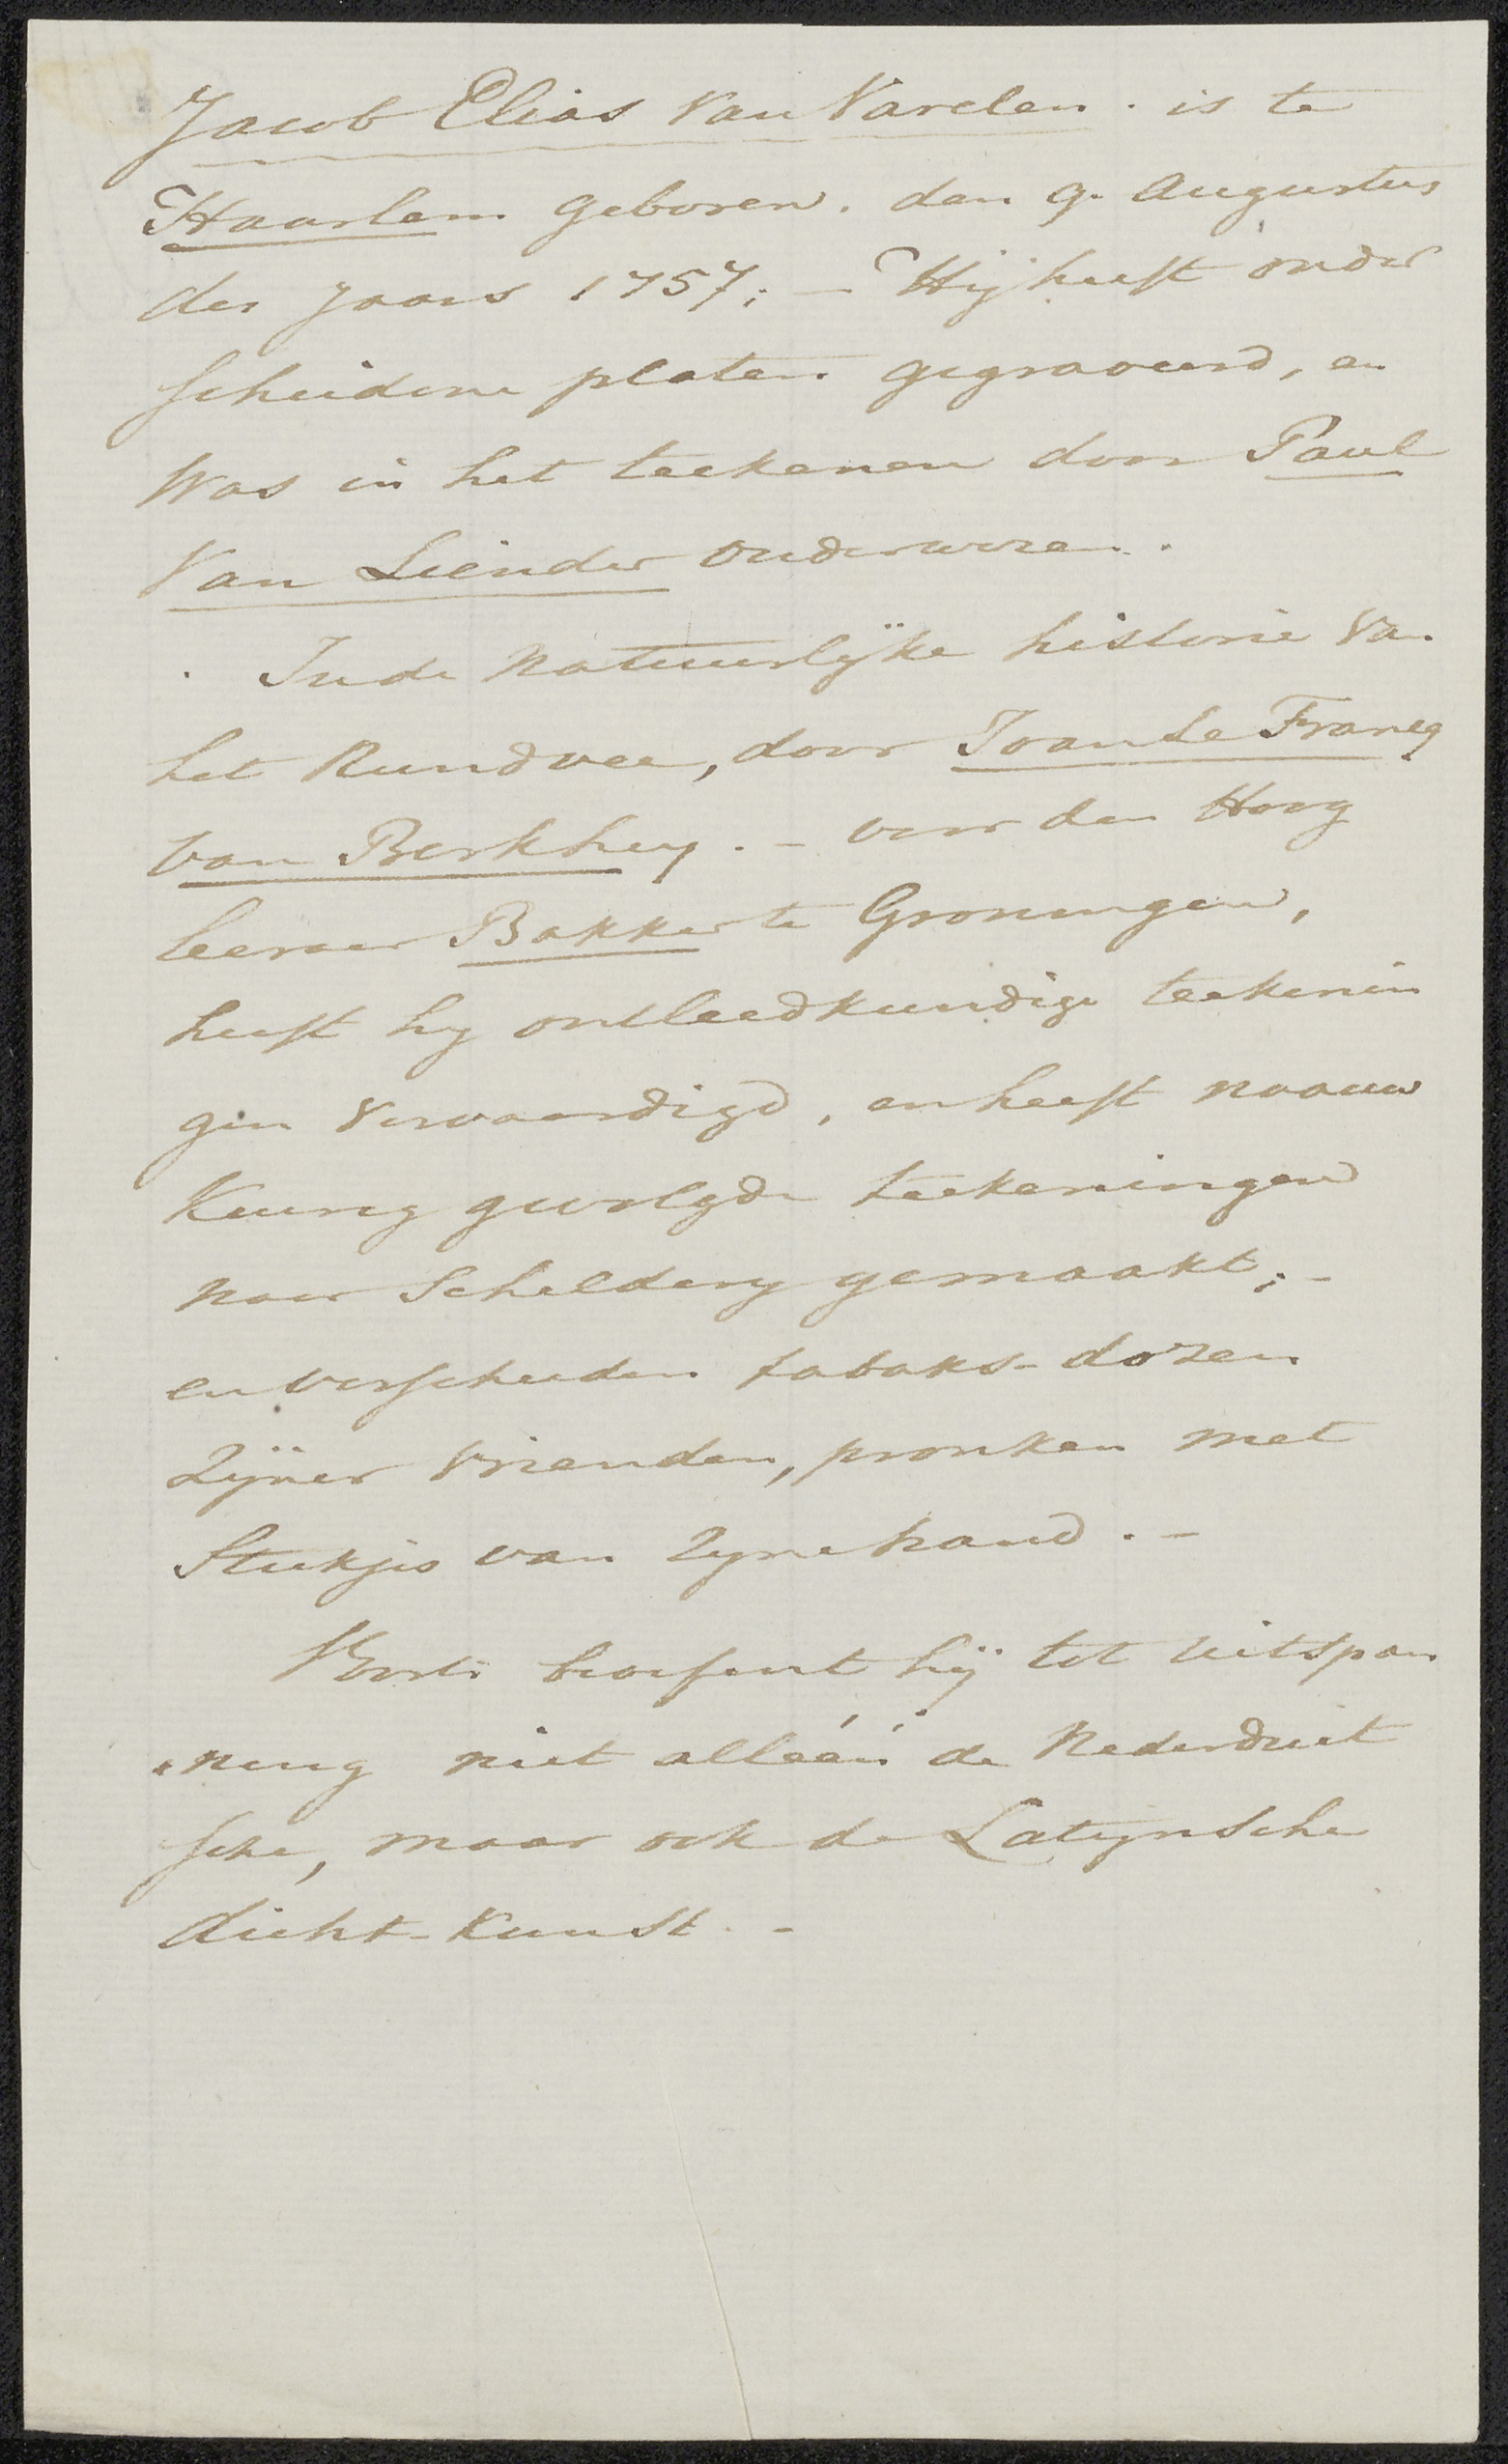 Jacob Elias Van Varelen. is te
Haarlem geboren. den 9. Augustus
des Jaars 1757; – Hij heeft onder
scheidene platen gegraveerd, en
Was in het teekenen door Paul
Van Liender onderwezen.
In de Natuurlijke historie Van
het Rundvee, door Joan Le Francq
van Berkhey. – voor den Hoog
leeraar Bakker te Groningen,
heeft hy ontleedkundige teekenin
gen Vervaardigd, en heeft naauw
Keurig gevolgde teekeningen
naar Schildery gemaakt; –
en verscheiden tabaks-dozen
Zijner Vrienden, pronken met
Stukjes van Zyne hand. –
Voorts beoefent hij tot Uitspan
„ning niet alléén de Nederduit
sche, maar ook de Latynsche
dicht-Kunst. –